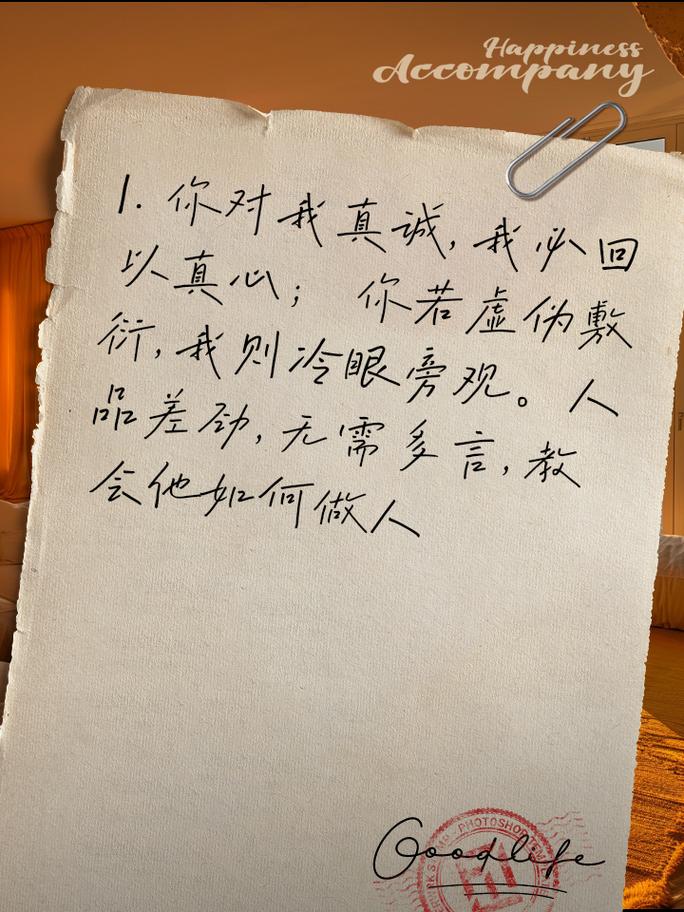 Happiness
Accompany
1. 你对我真诚，我必回
以真心； 你若虚伪敷
衍，我则冷眼旁观。人
品差劲，无需多言，教
会他如何做人
Goodlife
PHOTOSHOP